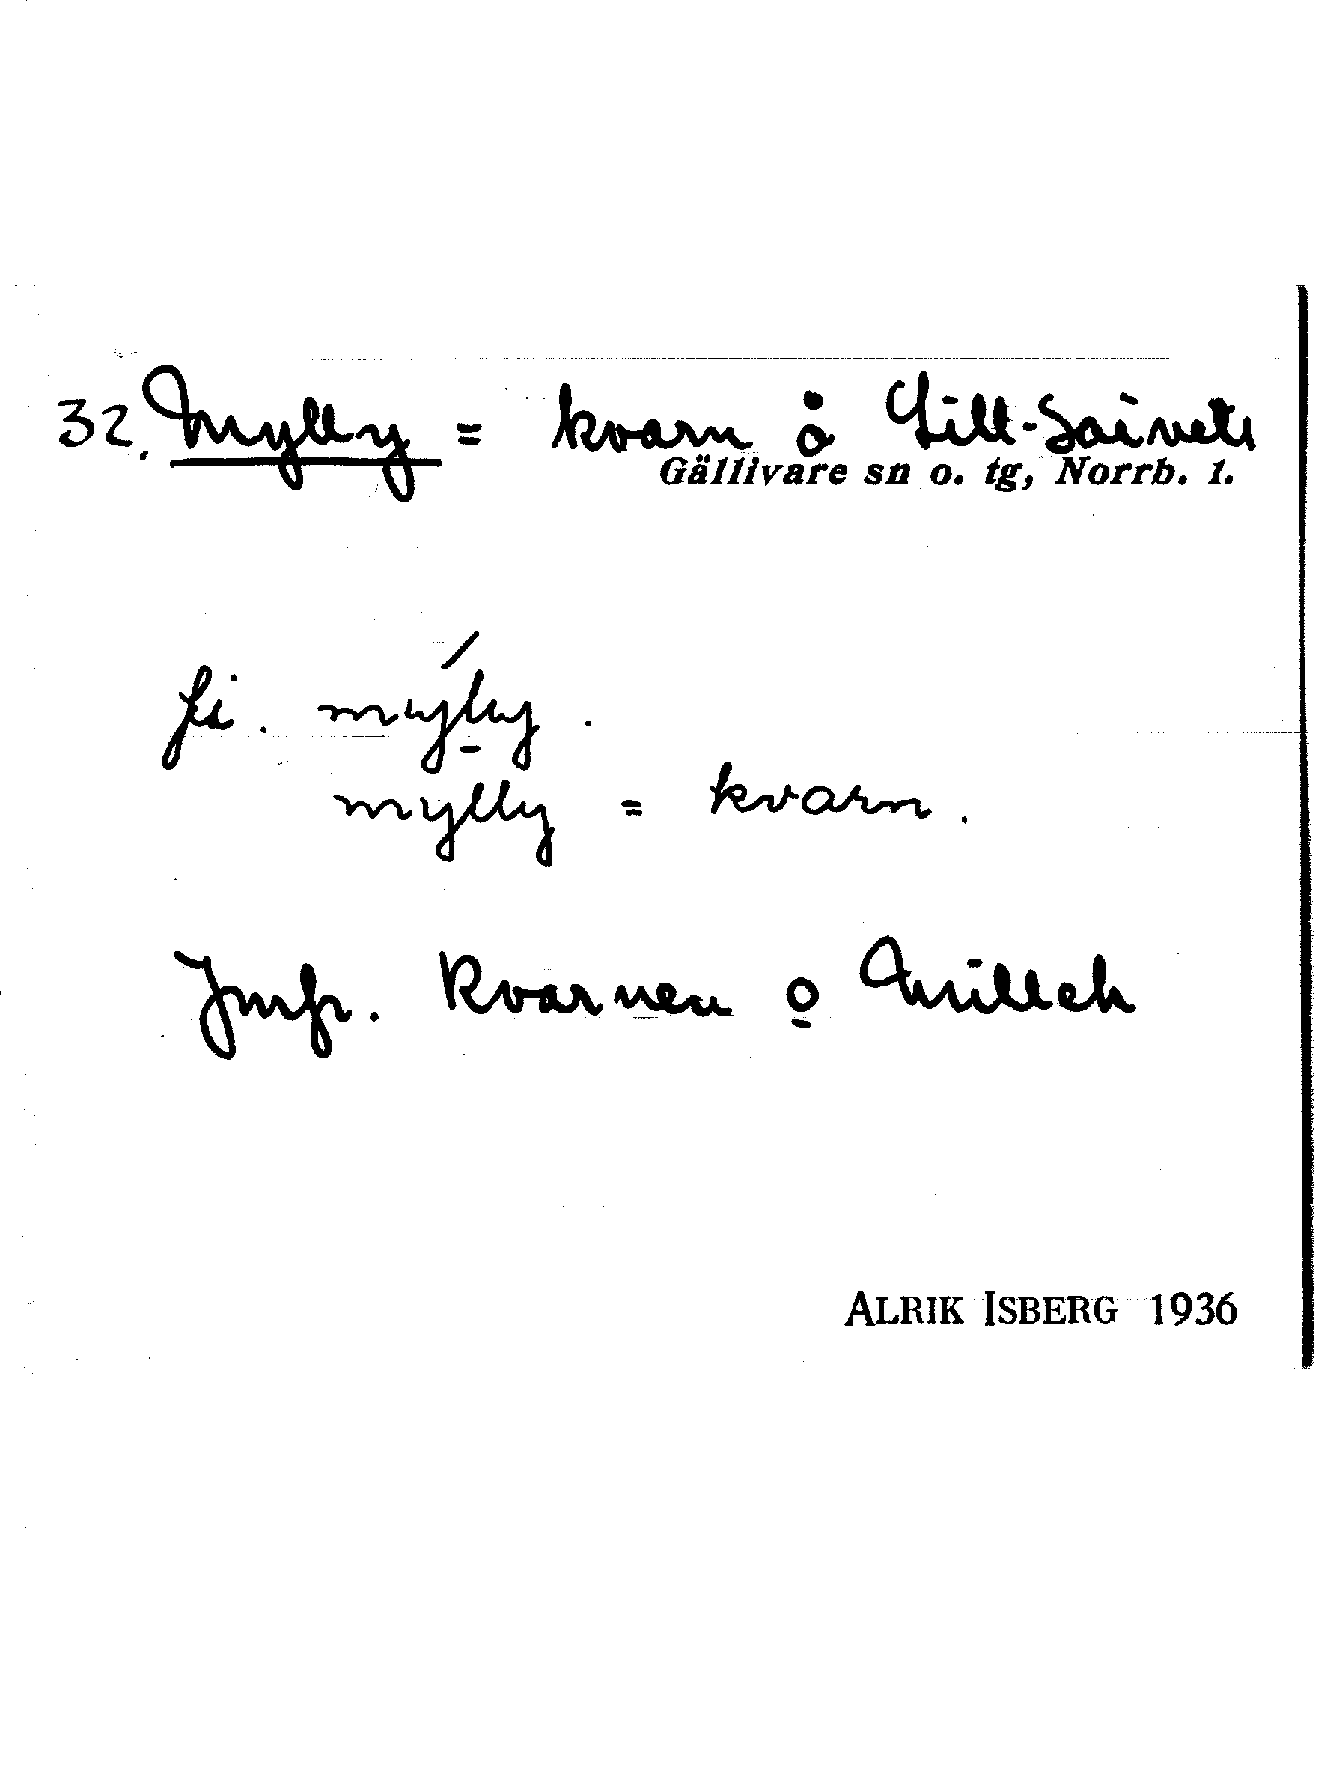 32. Mylly = kvarn å Lill-Saivets
Gällivare sn o. tg, Norrb. l.
fi. mýl̲y.
mylly = kvarn.
Jmfr. Kvarnen o̲ Millech
ALRIK ISBERG 1936